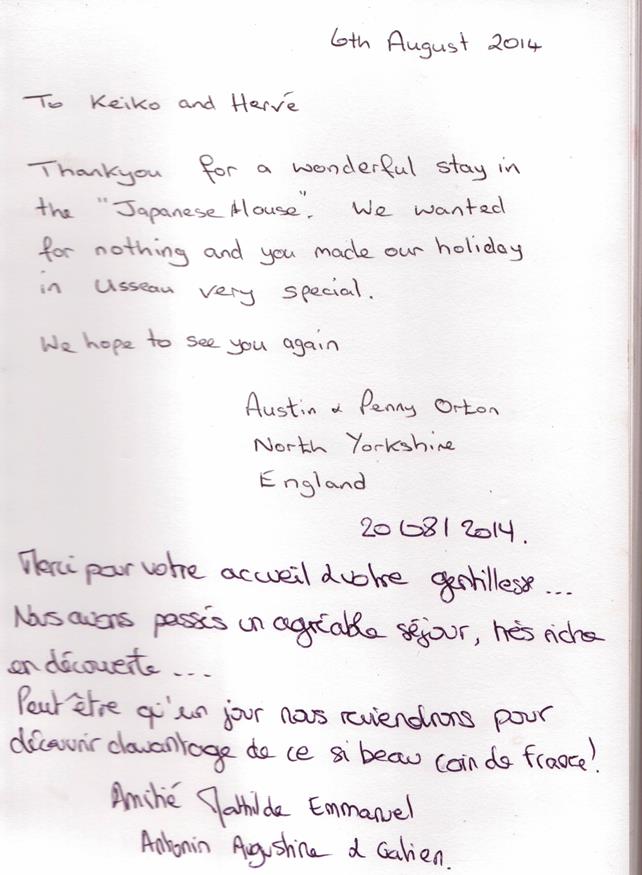 6th August 2014
To Keiko and Hervé
Thankyou for a wonderful stay in
the "Japanese House". We wanted
for nothing and you made our holiday
in Usseau very special.
We hope to see you again
Austin & Penny Orton
North Yorkshire
England
20/08/2014.
Merci pour votre accueil & votre gentillesse ...
Nous avons passés un agréable séjour, très riche
en découverte ...
Peut être qu'un jour nous reviendrons pour
découvrir davantage de ce si beau coin de france!
Amitié Mathilde Emmanuel
Antonin Augustine & Galien.